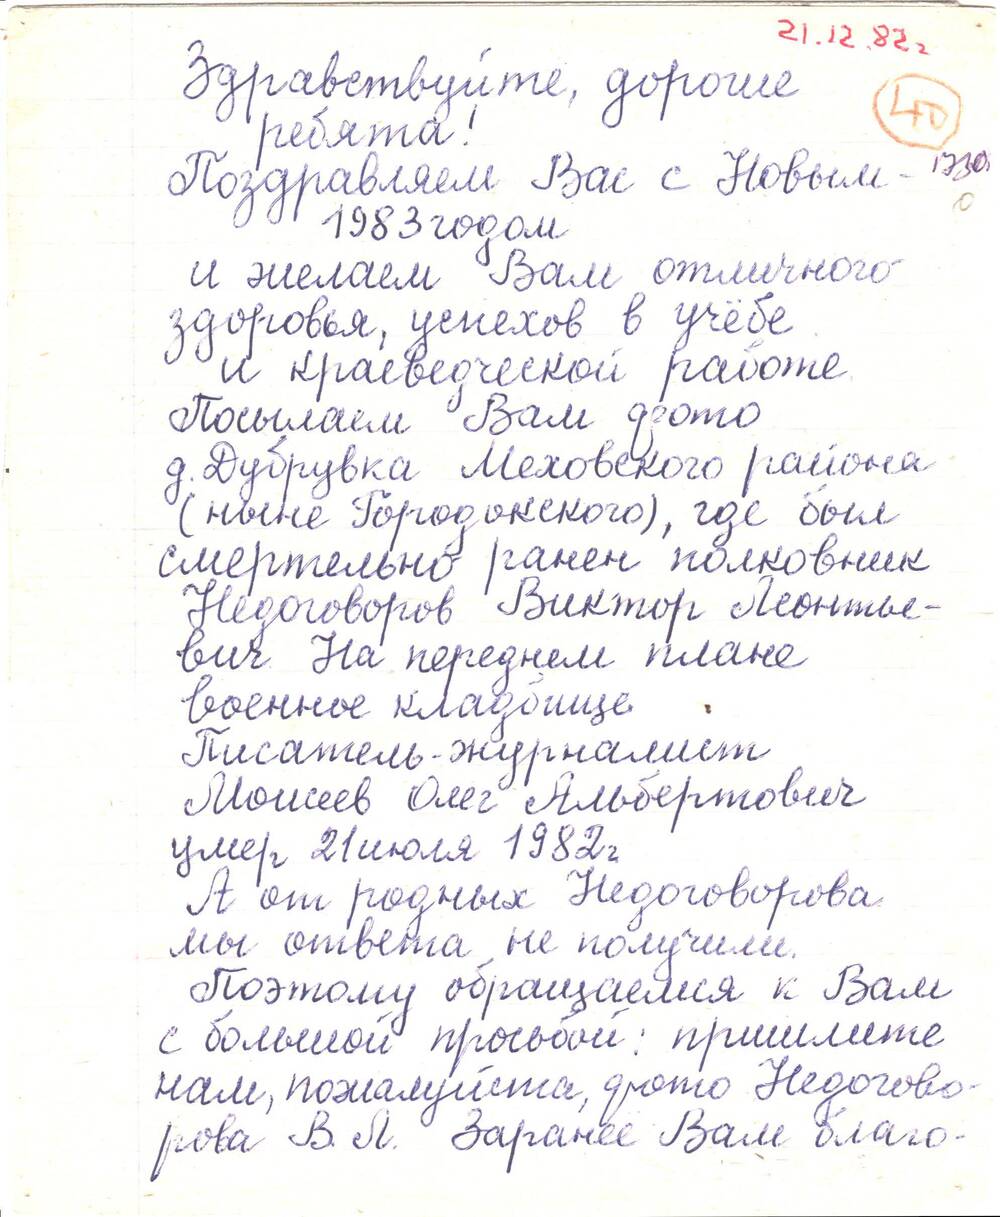 21.12.82г
40
Здравствуйте, дорогие
ребята!
Поздравляем Вас с Новым -
1983 годом
и желаем Вам отличного
здоровья, успехов в учёбе
и краеведческой работе.
Посылаем Вам фото
д. Дубрувка Меховского района
(ныне Городокского), где был
смертельно ранен полковник
Недоговоров Виктор Леонтье-
вич. На переднем плане
военное кладбище
Писатель-журналист
Моисеев Олег Альбертович
умер 21 июля 1982г
А от родных Недоговорова
мы ответа не получили.
Поэтому обращаемся к Вам
с большой просьбой: пришлите
нам, пожалуйста, фото Недогово-
рова В.Л. Заранее Вам благо-